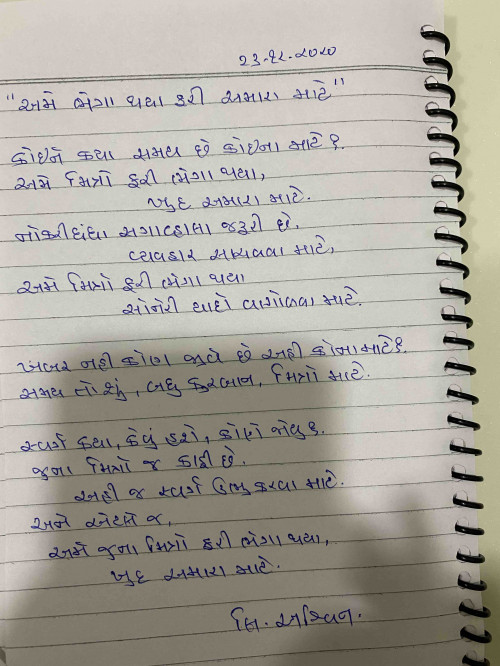 ૨૩-૧૨-૨૦૨૦
"અમે ભેગા થયા ફરી અમારા માટે"
કોઈને ક્યા સમય છે કોઈના માટે?.
અમે મિત્રો ફરી ભેગા થયા,
ખુદ અમારા માટે.
નોકરીધંધા સગાવ્હાલા જરૂરી છે,
વ્યવહાર સાચવવા માટે,
અમે મિત્રો ફરી ભેગા થયા
સોનેરી યાદો વાગોળવા માટે.
ખબર નહી કોણ જીવે છે અહી કોના માટે?.
સમય તો શું, બધુ કુરબાન, મિત્રો માટે.
સ્વર્ગ ક્યા, કેવું હશે, કોણે જોયુ?.
જુના મિત્રો જ કાફી છે.
અહી જ સ્વર્ગ ઉભુ કરવા માટે.
અને એટલે જ,
અમે જુના મિત્રો ફરી ભેગા થયા,
ખુદ અમારા માટે.
લિ. અશ્વિન.